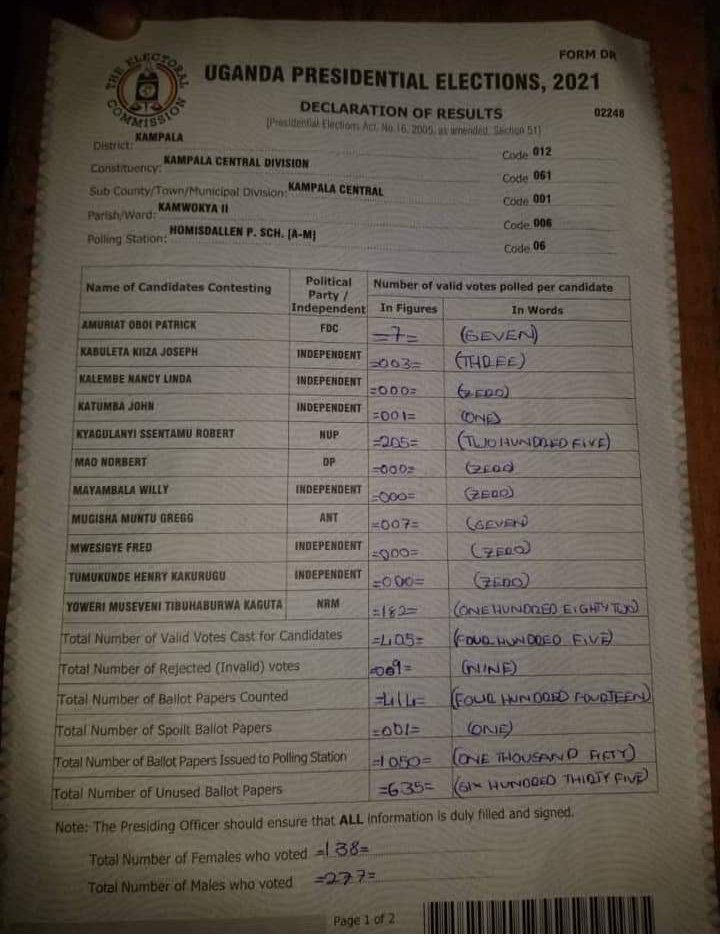 FORM DR
THE ELECTORAL COMMISSION
UGANDA PRESIDENTIAL ELECTIONS, 2021
DECLARATION OF RESULTS
02248
[Presidential Elections Act, No.16, 2005, as amended, Section 51]
District: KAMPALA Code 012
Constituency: KAMPALA CENTRAL DIVISION Code 061
Sub County/Town/Municipal Division: KAMPALA CENTRAL Code 001
Parish/Ward: KAMWOKYA II Code 006
Polling Station: HOMISDALLEN P. SCH. [A-M] Code 06
Name of Candidates Contesting Political Party / Independent Number of valid votes polled per candidate
In Figures In Words
AMURIAT OBOI PATRICK FDC =7= (SEVEN)
KABULETA KIIZA JOSEPH INDEPENDENT =003= (THREE)
KALEMBE NANCY LINDA INDEPENDENT =000= (ZERO)
KATUMBA JOHN INDEPENDENT =001= (ONE)
KYAGULANYI SSENTAMU ROBERT NUP =205= (TWO HUNDRED FIVE)
MAO NORBERT DP =000= (ZERO)
MAYAMBALA WILLY INDEPENDENT =000= (ZERO)
MUGISHA MUNTU GREGG ANT =007= (SEVEN)
MWESIGYE FRED INDEPENDENT =000= (ZERO)
TUMUKUNDE HENRY KAKURUGU INDEPENDENT =000= (ZERO)
YOWERI MUSEVENI TIBUHABURWA KAGUTA NRM =182= (ONE HUNDRED EIGHTY TWO)
Total Number of Valid Votes Cast for Candidates =405= (FOUR HUNDRED FIVE)
Total Number of Rejected (Invalid) votes =009= (NINE)
Total Number of Ballot Papers Counted =414= (FOUR HUNDRED FOURTEEN)
Total Number of Spoilt Ballot Papers =001= (ONE)
Total Number of Ballot Papers Issued to Polling Station =1050= (ONE THOUSAND FIFTY)
Total Number of Unused Ballot Papers =635= (SIX HUNDRED THIRTY FIVE)
Note: The Presiding Officer should ensure that ALL information is duly filled and signed.
Total Number of Females who voted =138=
Total Number of Males who voted =277=
Page 1 of 2